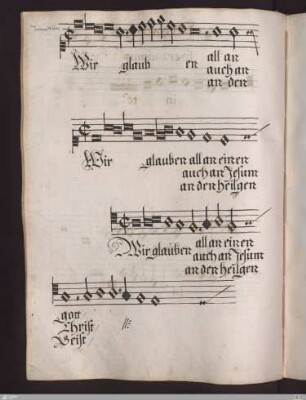 Wir glaub en all an
auch an
an den
Wir glauben all an einen
auch an Jesum
an den heilgen
Wir glauben all an einen
auch an Jesum
an den heilgen
gott
Christ
Geist